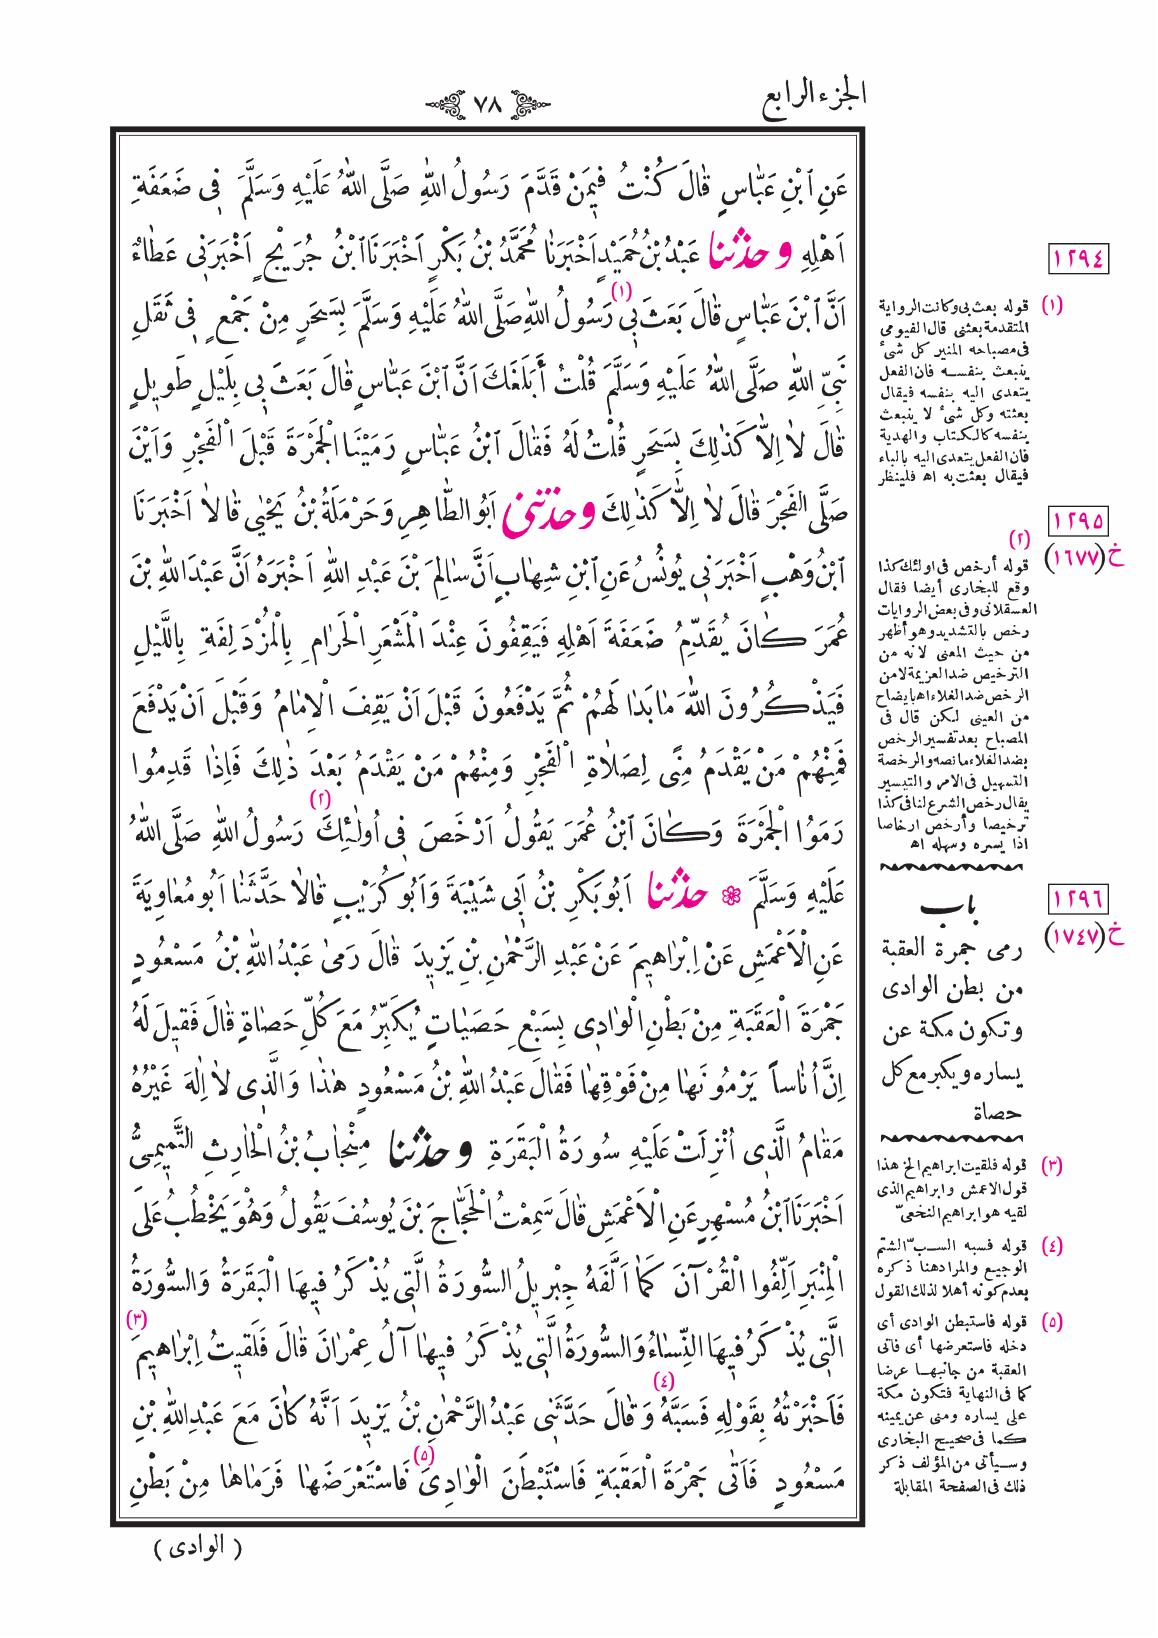 الجزء الرابع
٧٨
عَنِ ٱبْنِ عَبَّاسٍ قَالَ كُنْتُ فِيمَنْ قَدَّمَ رَسُولُ اللّٰهِ صَلَّى اللّٰهُ عَلَيْهِ وَسَلَّمَ فِي ضَعَفَةِ
اَهْلِهِ وحدثنا عَبْدُ بْنُ حُمَيْدٍ اَخْبَرَنَا مُحَمَّدُ بْنُ بَكْرٍ اَخْبَرَنَا ٱبْنُ جُرَيْجٍ اَخْبَرَنِى عَطَاءٌ
(١)
اَنَّ ٱبْنَ عَبَّاسٍ قَالَ بَعَثَ بِى رَسُولُ اللّٰهِ صَلَّى اللّٰهُ عَلَيْهِ وَسَلَّمَ بِسَحَرٍ مِنْ جَمْعٍ فِى ثَقَلِ
نَبِيِّ اللّٰهِ صَلَّى اللّٰهُ عَلَيْهِ وَسَلَّمَ قُلْتُ أَبَلَغَكَ اَنَّ ٱبْنَ عَبَّاسٍ قَالَ بَعَثَ بِى بِلَيْلٍ طَوِيلٍ
قَالَ لاٰ اِلاّٰ كَذٰلِكَ بِسَحَرٍ قُلْتُ لَهُ فَقَالَ ٱبْنُ عَبَّاسٍ رَمَيْنَا الْجَمْرَةَ قَبْلَ الْفَجْرِ وَاَيْنَ
صَلَّى الفَجْرَ قَالَ لاٰ اِلاّٰ كَذٰلِكَ وحدثنى اَبُو الطَّاهِرِ وَحَرْمَلَةُ بْنُ يَحْيٰى قَالاٰ اَخْبَرَنَا
ٱبْنُ وَهْبٍ اَخْبَرَنِى يُونُسُ عَنِ ٱبْنِ شِهَابٍ اَنَّ سَالِمَ بْنَ عَبْدِ اللّٰهِ اَخْبَرَهُ اَنَّ عَبْدَ اللّٰهِ بْنَ
عُمَرَ كَانَ يُقَدِّمُ ضَعَفَةَ اَهْلِهِ فَيَقِفُونَ عِنْدَ الْمَشْعَرِ الْحَرَامِ بِالْمُزْدَلِفَةِ بِاللَّيْلِ
فَيَذْكُرُونَ اللّٰهَ مَا بَدَا لَهُمْ ثُمَّ يَدْفَعُونَ قَبْلَ اَنْ يَقِفَ الْاِمَامُ وَقَبْلَ اَنْ يَدْفَعَ
فَمِنْهُمْ مَنْ يَقْدَمُ مِنًى لِصَلاٰةِ الْفَجْرِ وَمِنْهُمْ مَنْ يَقْدَمُ بَعْدَ ذٰلِكَ فَاِذَا قَدِمُوا
(٢)
رَمَوُا الْجَمْرَةَ وَكَانَ ٱبْنُ عُمَرَ يَقُولُ اَرْخَصَ فِى اُولٰئِكَ رَسُولُ اللّٰهِ صَلَّى اللّٰهُ
عَلَيْهِ وَسَلَّمَ ❀ حدثنا اَبُو بَكْرِ بْنُ اَبِى شَيْبَةَ وَاَبُو كُرَيْبٍ قَالاٰ حَدَّثَنَا اَبُو مُعَاوِيَةَ
عَنِ الْاَعْمَشِ عَنْ اِبْرَاهِيمَ عَنْ عَبْدِ الرَّحْمٰنِ بْنِ يَزِيدَ قَالَ رَمٰى عَبْدُ اللّٰهِ بْنُ مَسْعُودٍ
جَمْرَةَ الْعَقَبَةِ مِنْ بَطْنِ الْوَادِى بِسَبْعِ حَصَيَاتٍ يُكَبِّرُ مَعَ كُلِّ حَصَاةٍ قَالَ فَقِيلَ لَهُ
اِنَّ اُنَاساً يَرْمُونَهَا مِنْ فَوْقِهَا فَقَالَ عَبْدُ اللّٰهِ بْنُ مَسْعُودٍ هٰذَا وَالَّذِى لاٰ اِلٰهَ غَيْرُهُ
مَقَامُ الَّذِى اُنْزِلَتْ عَلَيْهِ سُورَةُ الْبَقَرَةِ وحدثنا مِنْجَابُ بْنُ الْحَارِثِ التَّمِيمِىُّ
اَخْبَرَنَا ٱبْنُ مُسْهِرٍ عَنِ الْاَعْمَشِ قَالَ سَمِعْتُ الْحَجَّاجَ بْنَ يُوسُفَ يَقُولُ وَهُوَ يَخْطُبُ عَلَى
الْمِنْبَرِ اَلِّفُوا الْقُرْآنَ كَمَا اَلَّفَهُ جِبْرِيلُ السُّورَةُ الَّتِى يُذْكَرُ فِيهَا الْبَقَرَةُ وَالسُّورَةُ
(٣)
الَّتِى يُذْكَرُ فِيهَا النِّسَاءُ وَالسُّورَةُ الَّتِى يُذْكَرُ فِيهَا آلُ عِمْرَانَ قَالَ فَلَقِيتُ اِبْرَاهِيمَ
(٤)
فَاَخْبَرْتُهُ بِقَوْلِهِ فَسَبَّهُ وَقَالَ حَدَّثَنِى عَبْدُ الرَّحْمٰنِ بْنُ يَزِيدَ اَنَّهُ كَانَ مَعَ عَبْدِ اللّٰهِ بْنِ
(٥)
مَسْعُودٍ فَاَتَى جَمْرَةَ الْعَقَبَةِ فَاسْتَبْطَنَ الْوَادِىَ فَاسْتَعْرَضَهَا فَرَمَاهَا مِنْ بَطْنِ
( الوادى )
١٢٩٤
(١) قوله بعث بى وكانت الرواية
المتقدمة بعثنى قال الفيومى
فى مصباحه المنير كل شىء
ينبعث بنفسه فان الفعل
يتعدى اليه بنفسه فيقال
بعثته وكل شىء لا ينبعث
بنفسه كالكتاب والهدية
فان الفعل يتعدى اليه بالباء
فيقال بعثت به اه فلينظر
١٢٩٥
(٢)
خ (١٦٧٧)
قوله أرخص فى اولئك كذا
وقع للبخارى أيضا فقال
العسقلانى وفى بعض الروايات
رخص بالتشديد وهو أظهر
من حيث المعنى لانه من
الترخيص ضد العزيمة لا من
الرخص ضد الغلاء اه بايضاح
من العينى ليكن قال فى
المصباح بعد تفسير الرخص
بضد الغلاء ما نصه والرخصة
التسهيل فى الامر والتيسير
يقال رخص الشرع لنا فى كذا
ترخيصا وأرخص ارخاصا
اذا يسره وسهله اه
١٢٩٦
خ (١٧٤٧)
باب
رمى جمرة العقبة
من بطن الوادى
وتكون مكة عن
يساره ويكبر مع كل
حصاة
(٣) قوله فلقيت ابراهيم الخ هذا
قول الاعمش وابراهيم الذى
لقيه هو ابراهيم النخعىّ
(٤) قوله فسبه السبّ الشتم
الوجيع والمراد هنا ذكره
بعدم كونه أهلا لذلك القول
(٥) قوله فاستبطن الوادى أى
دخله فاستعرضها أى فاتى
العقبة من جانبها عرضا
كما فى النهاية فتكون مكة
على يساره ومنى عن يمينه
كما فى صحيح البخارى
وسيأتى من المؤلف ذكر
ذلك فى الصفحة المقابلة